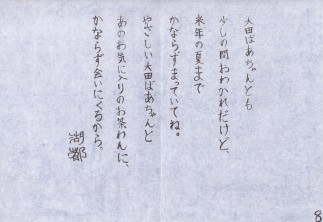 大田ばあちゃんとも
少しの間おわかれだけど、
来年の夏まで
かならずまっていてね。
やさしい大田ばあちゃんと
あのお気に入りのお茶わんに、
かならず会いにくるから。
湖都
8